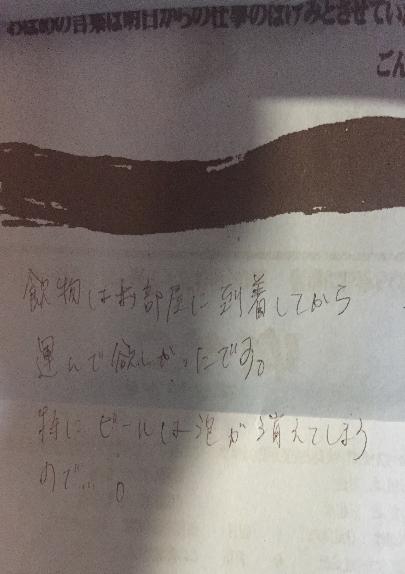 おほめの言葉は明日からの仕事のはげみとさせてい
ごん
飲物はお部屋に到着してから
運んで欲しかったです。
特にビールは泡が消えてしまう
ので…。